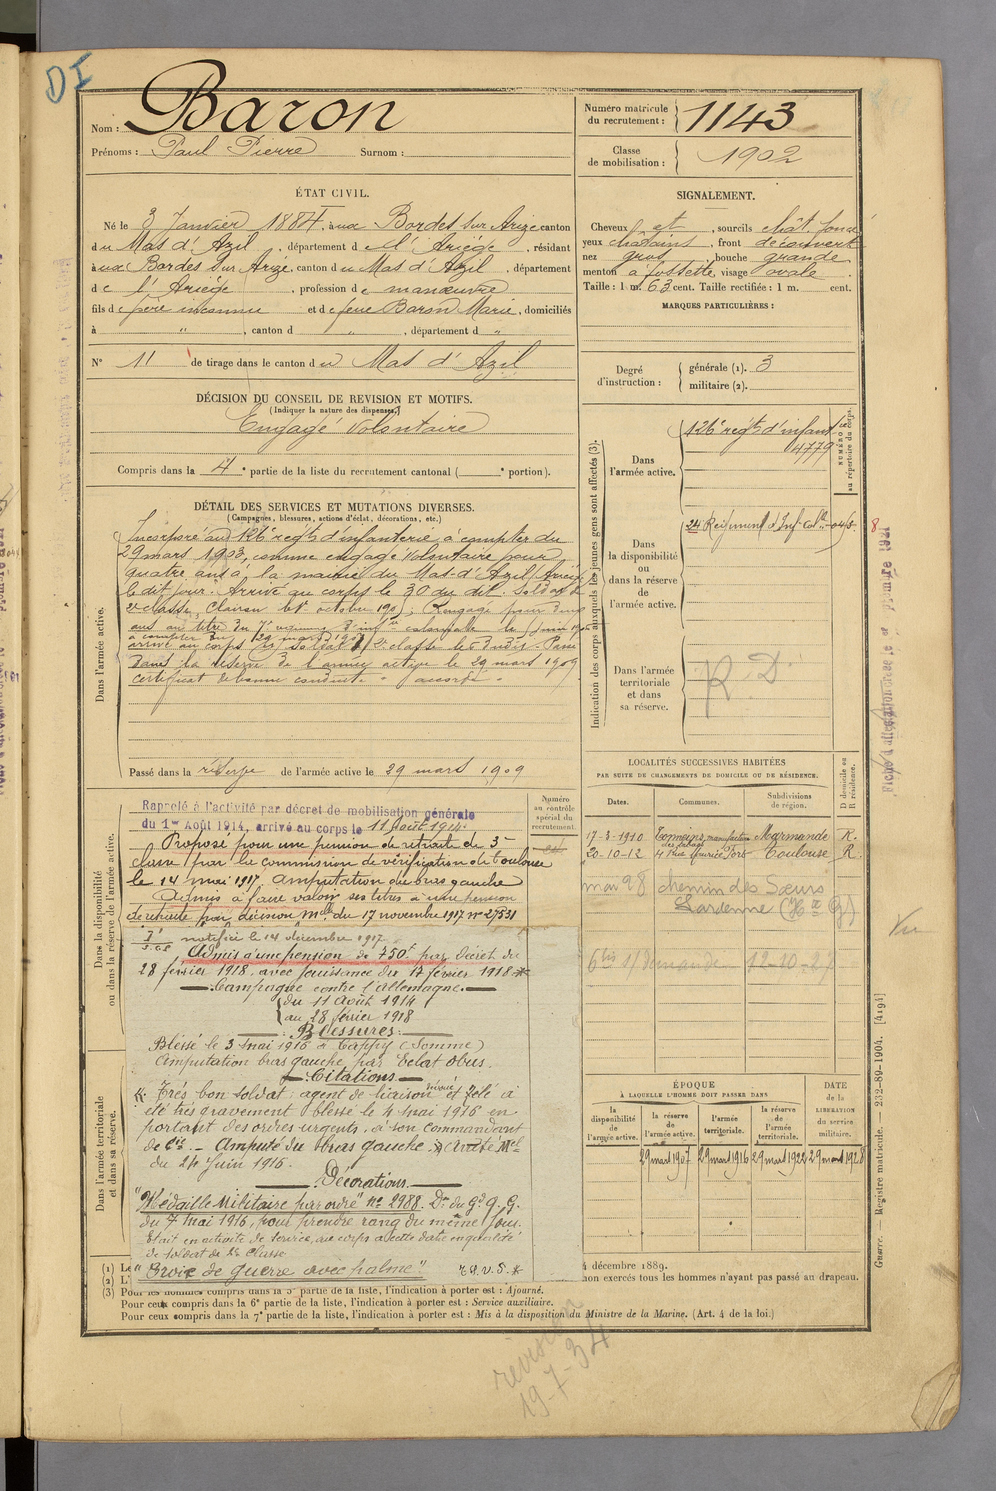 DI
Nom : Baron
Prénoms : Paul Pierre Surnom :
Numéro matricule du recrutement : 1143
Classe de mobilisation : 1902
ÉTAT CIVIL.
Né le 3 Janvier 1884, à aux Bordes sur Arize canton
du Mas d'Azil, département de l'Ariège, résidant
à aux Bordes sur Arize, canton du Mas d'Azil, département
de l'Ariège, profession de manœuvre
fils de père inconnu et de feue Baron Marie, domiciliés
à " , canton d " , département d "
N° 11 de tirage dans le canton du Mas d'Azil
SIGNALEMENT.
Cheveux et , sourcils chât. foncé
yeux châtains , front découvert
nez gros , bouche grande
menton à fossette, visage ovale .
Taille : 1 m. 63 cent. Taille rectifiée : 1 m. cent.
MARQUES PARTICULIÈRES :
Degré d'instruction : générale (1). 3
militaire (2).
DÉCISION DU CONSEIL DE REVISION ET MOTIFS.
(Indiquer la nature des dispenses.)
Engagé Volontaire
Compris dans la 4e partie de la liste du recrutement cantonal ( e portion).
DÉTAIL DES SERVICES ET MUTATIONS DIVERSES.
(Campagnes, blessures, actions d'éclat, décorations, etc.)
Dans l'armée active.
Incorporé au 126e régt d'infanterie à compter du
29 mars 1903, comme engagé volontaire pour
quatre ans à la mairie du Mas-d'Azil (Ariège)
le dit jour. Arrivé au corps le 30 du dit. Soldat de
2e classe, Clairon le 1er octobre 190 ; Rengagé pour deux
ans au titre du 7e régiment d'infrie coloniale le
à compter du 29 mars 1907
arrivé au corps soldat 2e classe le dudit. Passé
dans la réserve de l'armée active le 29 mars 1909
certificat de bonne conduite " accordé "
Passé dans la réserve de l'armée active le 29 mars 1909
Indication des corps auxquels les jeunes gens sont affectés (3).
NUMÉROS au répertoire du corps.
Dans l'armée active.
126e régt d'infant.
4779
Dans la disponibilité ou dans la réserve de l'armée active.
24 Régiment d'Inf. Colle
Dans l'armée territoriale et dans sa réserve.
R. D
LOCALITÉS SUCCESSIVES HABITÉES
PAR SUITE DE CHANGEMENTS DE DOMICILE OU DE RÉSIDENCE.
Dates. Communes. Subdivisions de région. D domicile ou R résidence.
17-3-1910 Tonneins, manufacture des tabacs Marmande R.
20-10-12 4 Rue Maurice Toulouse R.
mai 28 chemin des Sœurs
Lardenne (Hte G.)
12-10-27
Dans la disponibilité ou dans la réserve de l'armée active.
Numéro au contrôle spécial du recrutement.
Rappelé à l'activité par décret de mobilisation générale
du 1er Août 1914, arrivé au corps le 11 Août 1914.
Proposé pour une pension de retraite de 5e
classe par la commission de vérification de Toulouse
le 14 mai 1917 amputation du bras gauche
Admis à faire valoir ses titres à une pension
de retraite par décision Mlle du 17 novembre 1917 n° 27531
notifiée le 14 décembre 1917
Admis à une pension de 750f par décret du
28 février 1918, avec jouissance du 17 février 1918
Campagne contre l'Allemagne.
du 11 août 1914
au 28 février 1918
Blessures :
Blessé le 3 mai 1916 à Cappy (Somme)
Amputation bras gauche par Eclat obus.
Citations
Très bon soldat, agent de liaison et zélé a
été très gravement blessé le 4 mai 1916 en
portant des ordres urgents, à son commandant
de Cie. - Amputé du bras gauche. Arrêté Mel
du 24 Juin 1916.
Décorations
"Médaille Militaire par ordre" n° 2988. D. du Gd Q. G.
du 7 mai 1916, pour prendre rang du même jour.
Etait en activité de service, au corps à cette date en qualité
de soldat de 2e classe
"Croix de guerre avec palme" T.S.V.P.
Dans l'armée territoriale et dans sa réserve.
ÉPOQUE
À LAQUELLE L'HOMME DOIT PASSER DANS
la disponibilité de l'armée active. la réserve de l'armée active. l'armée territoriale. la réserve de l'armée territoriale.
DATE de la LIBÉRATION du service militaire.
29 mars 1907 29 mars 1916 29 mars 1922 29 mars 1928
(1) Le
décembre 1889.
(2) L'
non exercés tous les hommes n'ayant pas passé au drapeau.
(3) Pour les hommes compris dans la 5e partie de la liste, l'indication à porter est : Ajourné.
Pour ceux compris dans la 6e partie de la liste, l'indication à porter est : Service auxiliaire.
Pour ceux compris dans la 7e partie de la liste, l'indication à porter est : Mis à la disposition du Ministre de la Marine. (Art. 4 de la loi.)
Guerre. — Registre matricule. — 232-89-1904. [4194]
révision
19-7-34